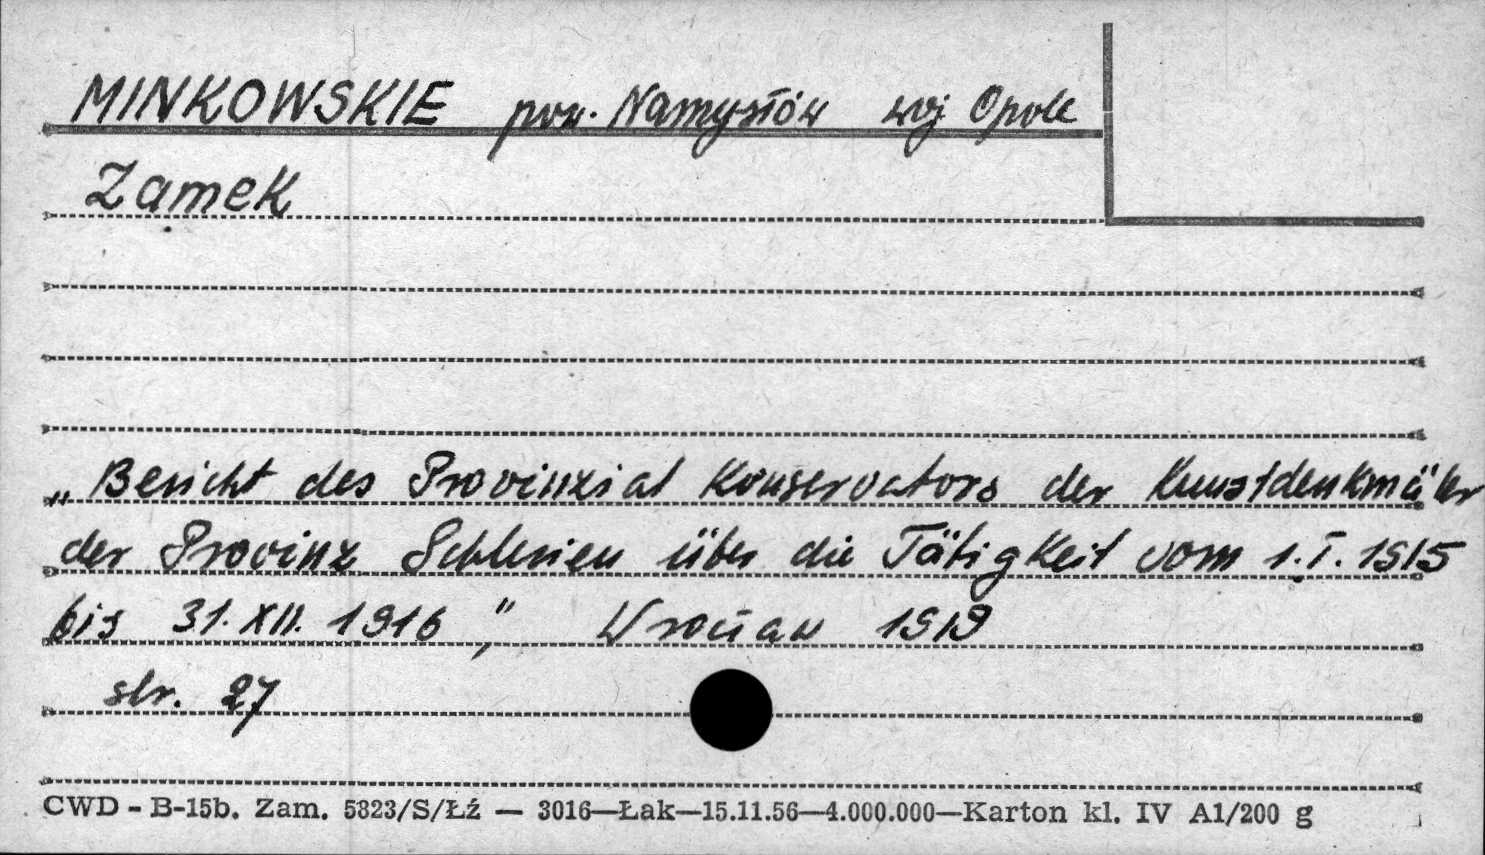 MINKOWSKIE pow. Namysłów woj Opole
Zamek
„Bericht des Provinzial Konservators der Kunstdenkmäler
der Provinz Schlesien über die Tätigkeit vom 1.I.1915
bis 31.XII.1916", Wrocław 1919
str. 27
CWD - B-15b. Zam. 5823/S/Łź — 3016—Łak—15.11.56—4.000.000—Karton kl. IV A1/200 g